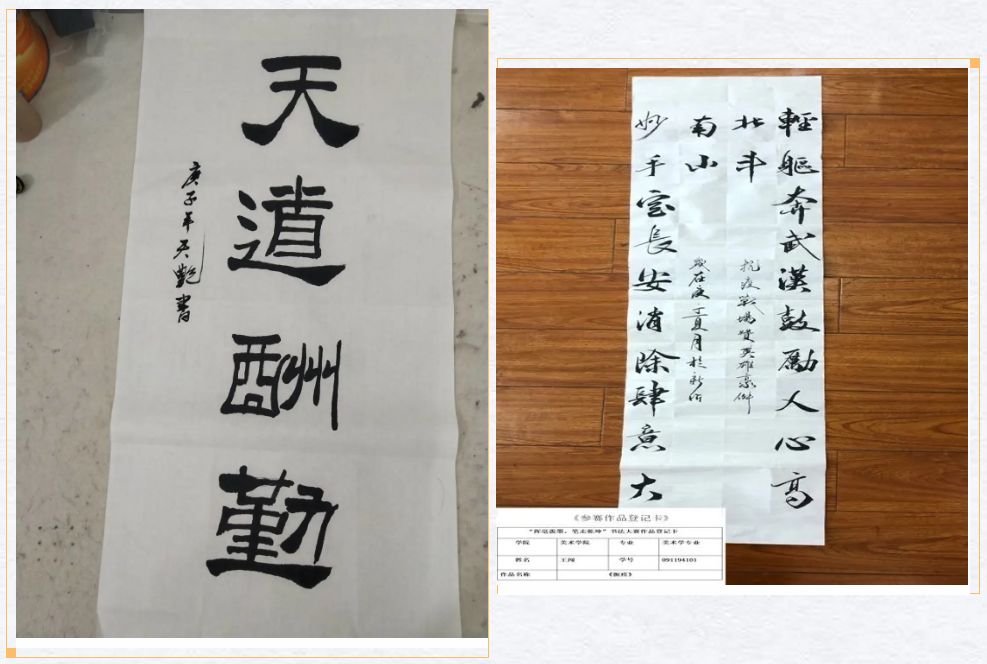 天道酬勤
庚子年艷書
輕軀奔武漢鼓勵人心高
北斗
抗疫戰場贊英雄
南山
歲在庚子夏月於新
妙手定長安消除肆意大
《参赛作品登记卡》
"挥毫泼墨，笔走乾坤"书法大赛作品登记卡
学院 美术学院 专业 美术学专业
姓名 王 学号 091194101
作品名称